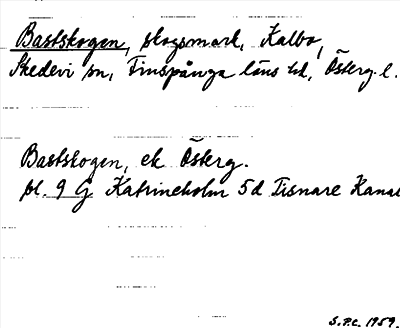 Bastskogen, skogsmark, Kalbo,
Skedevi sn, Finspånga läns hd, Österg. l.
Bastskogen, ek Österg.
bl. 9 G Katrineholm 5d Tisnare Kanal
S.P.C. 1959.